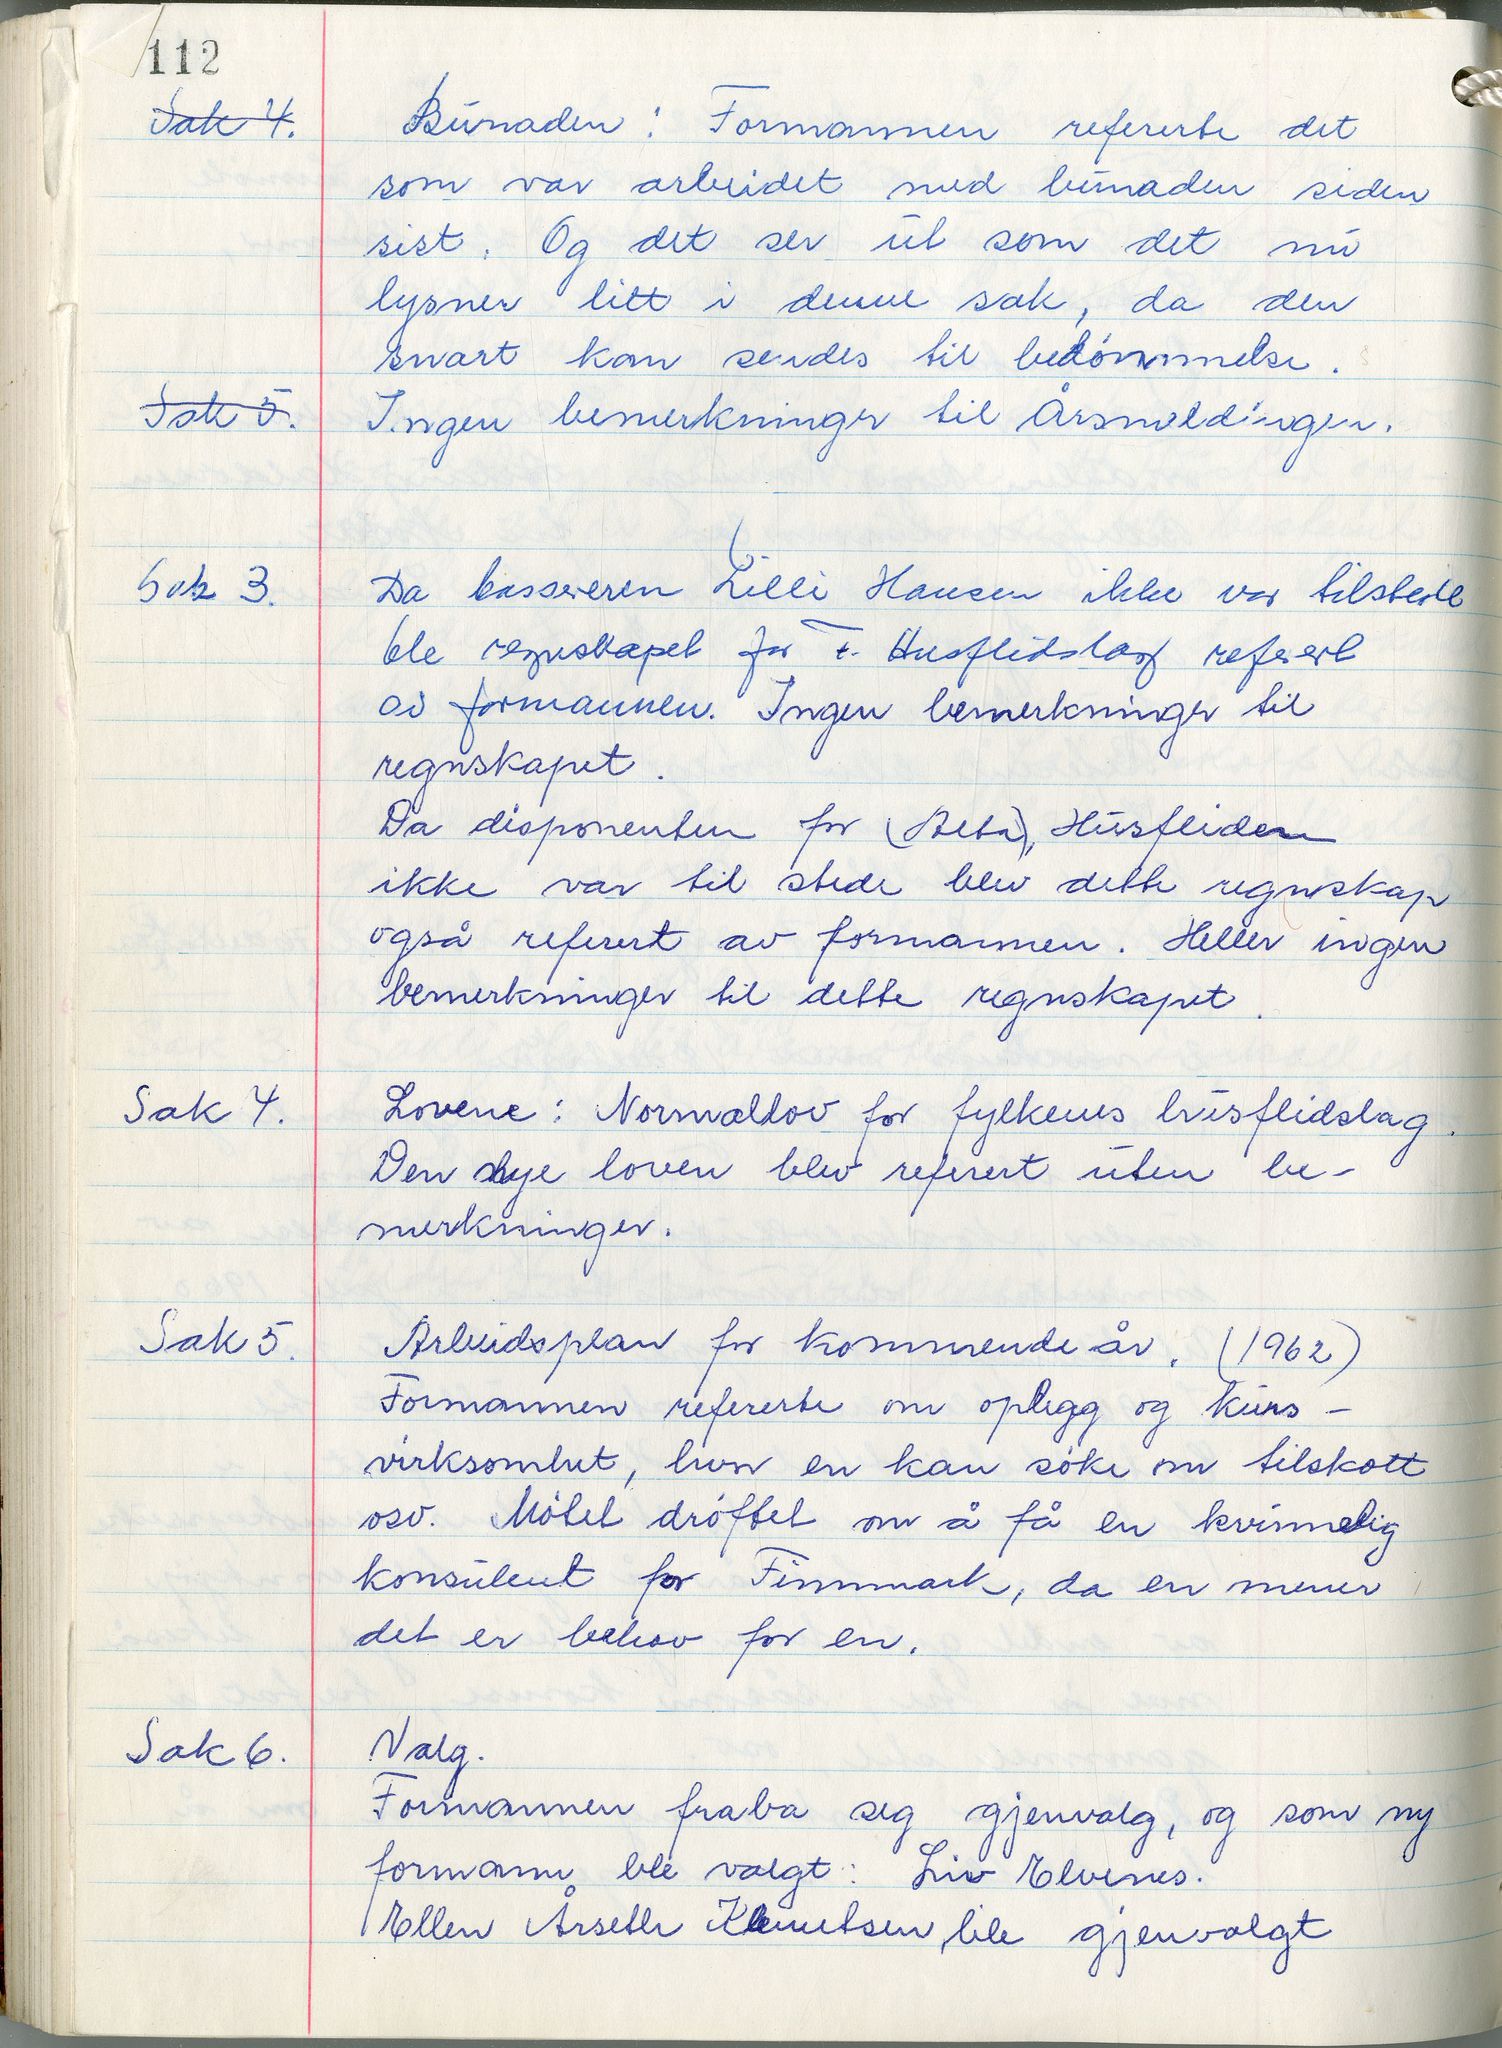 112
Sak 4. Bunaden: Formannen refererte det
som var arbeidet med bunaden siden
sist. Og det ser ut som det nu
lysner litt i denne sak, da den
snart kan sendes til bedömmelse.
Sak 5. Ingen bemerkninger til Årsmeldingen.
Sak 3. Da kassereren Lilli Hansen ikke var tilstede
ble regnskapet for F. Husflidslag referert
av formannen. Ingen bemerkninger til
regnskapet.
Da disponenten for (Alta), Husfliden
ikke var til stede blev dette regnskap
også referert av formannen. Heller ingen
bemerkninger til dette regnskapet.
Sak 4. Lovene: Normallov for fylkenes husflidslag.
Den nye loven blev referert uten be-
merkninger.
Sak 5. Arbeidsplan for kommende år. (1962)
Formannen refererte om oplegg og kurs-
virksomhet, hvor en kan söke om tilskott
osv. Mötet dröftet om å få en kvinnelig
konsulent for Finnmark, da en mener
det er behov for en.
Sak 6. Valg.
Formannen fraba seg gjenvalg, og som ny
formann ble valgt: Liv Elvenes.
Ellen Årseth Knutsen ble gjenvalgt